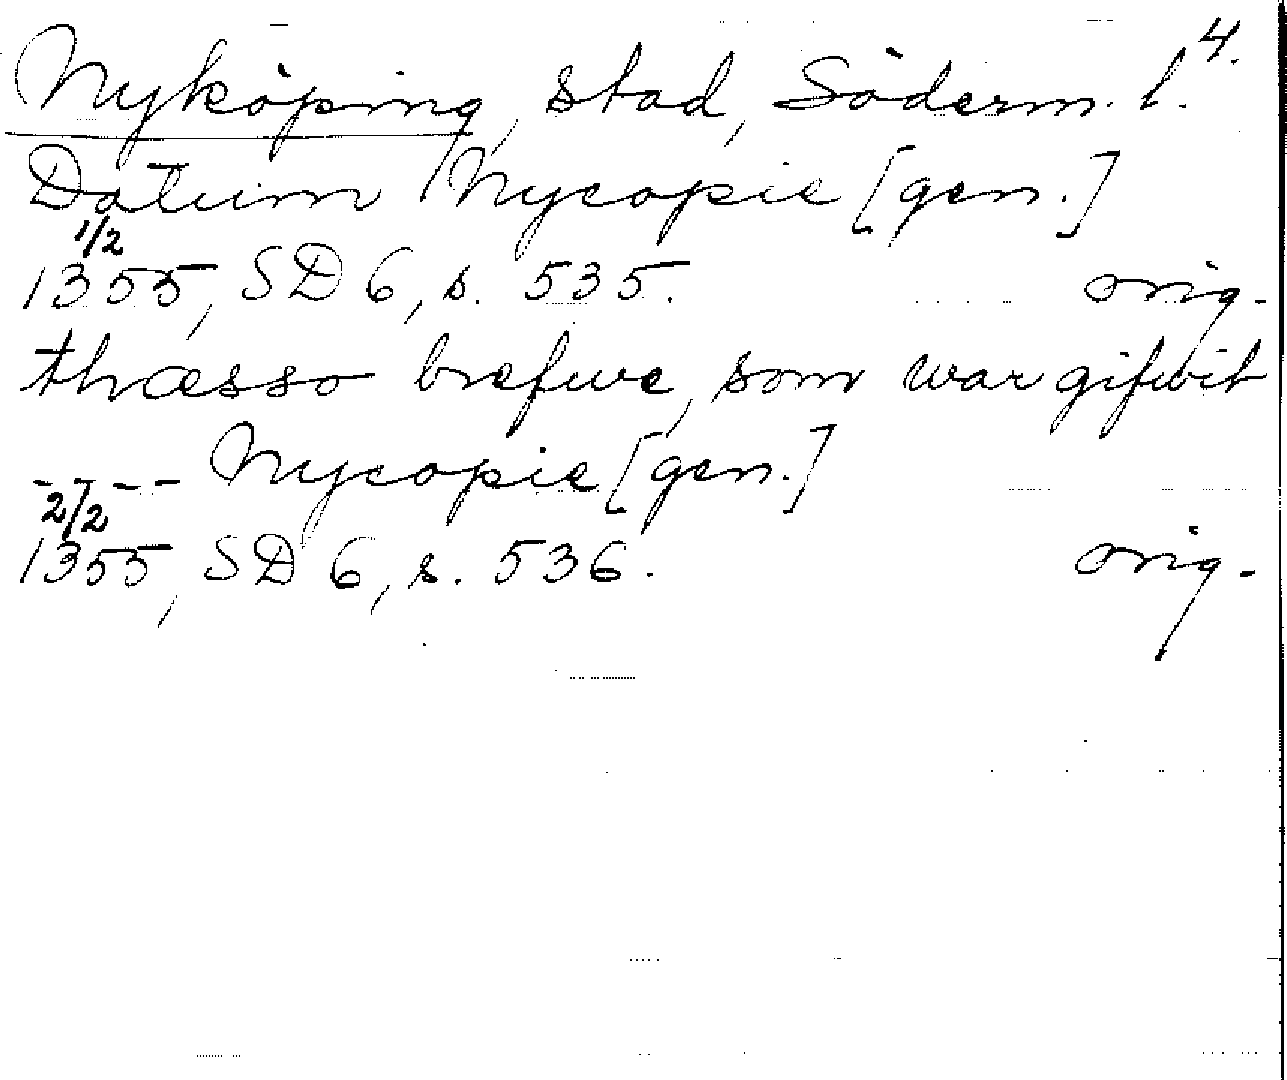 4.
Nyköping, stad, Söderm. l.
Datum Nycopie [gen.]
1/2
1355, SD 6, s. 535. orig.
thæsso brefwe, som war gifwit
---- Nycopie [gen.]
2/2
1355, SD 6, s. 536. orig.